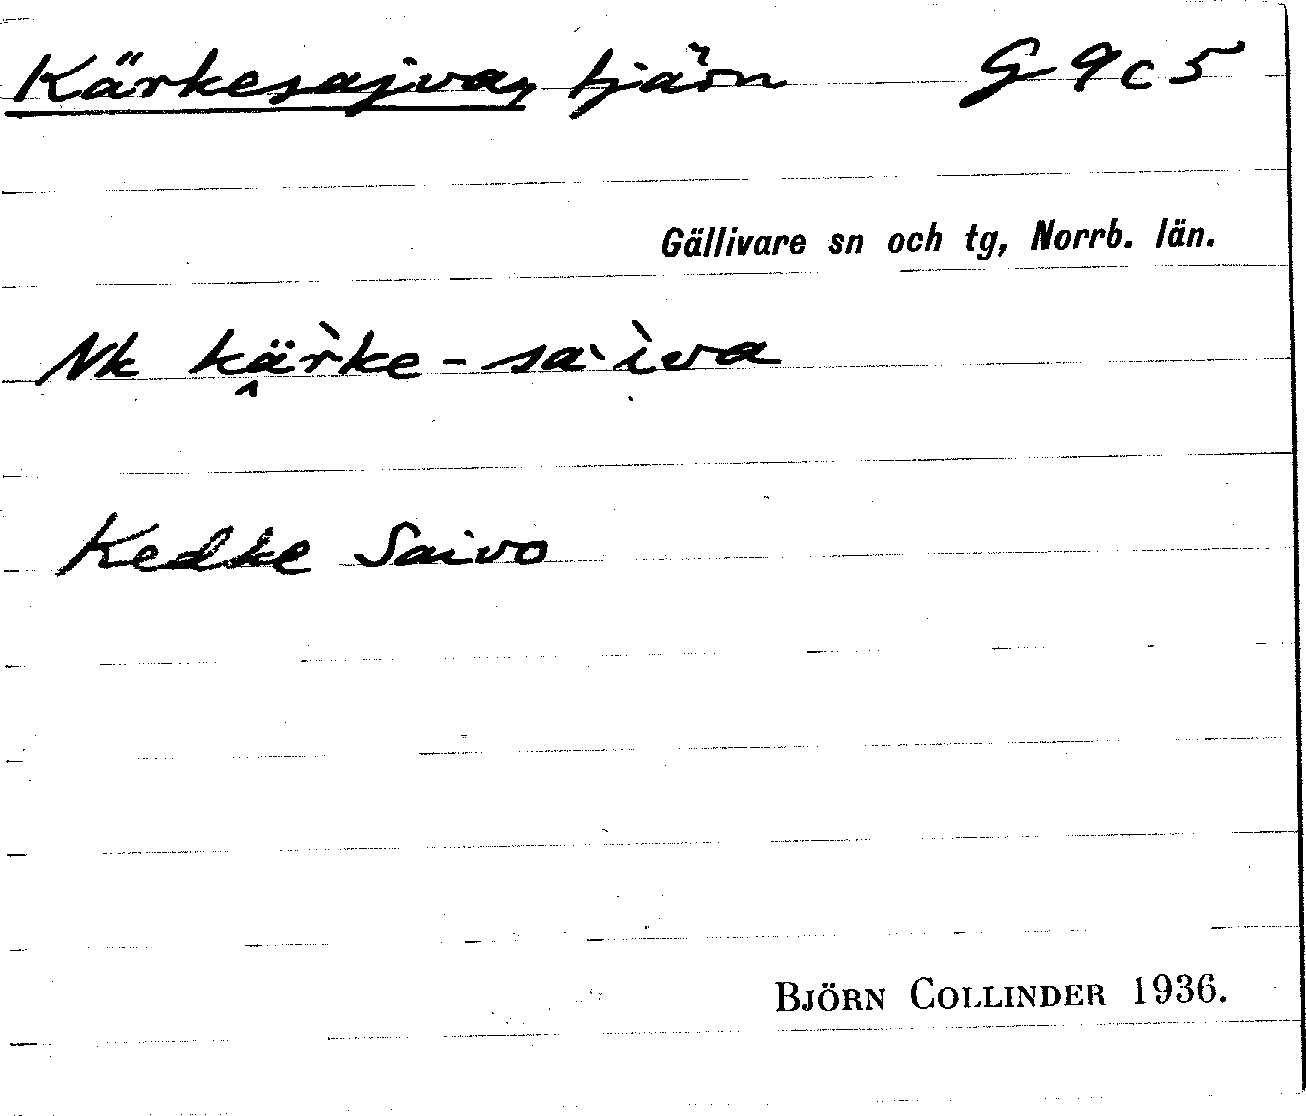 Kärkesajva, tjärn G 9 c 5
Gällivare sn och tg, Norrb. län.
Nk kä̭r̀ke-sàì̭va
Kedke Saivo
BJÖRN COLLINDER 1936.